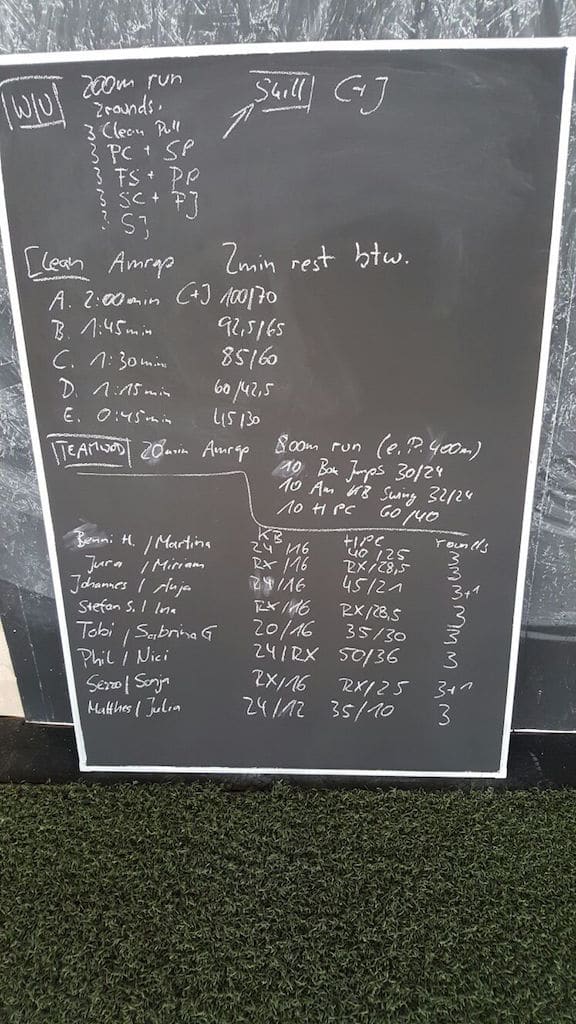 W/U 200m run
2rounds.
3 Clean Pull
3 PC + SP
3 FS + PP
3 SC + PJ
3 SJ
Skill C+J
Clean Amrap 2min rest btw.
A. 2:00min C+J 100/70
B. 1:45min 92,5/65
C. 1:30min 85/60
D. 1:15min 60/42,5
E. 0:45min 45/30
TEAMWOD 20min Amrap 800m run (e.P. 400m)
10 Box Jumps 30/24
10 Am KB Swing 32/24
10 HPC 60/40
KB HPC rounds
Benni H. / Martina 24/16 40/25 3
Jura / Miriam RX/16 RX/28,5 3
Johannes / Anja 24/16 45/21 3+1
Stefan S. / Ina RX/16 RX/28,5 3
Tobi / Sabrina G 20/16 35/30 3
Phil / Nici 24/RX 50/36 3
Sezzo / Sonja RX/16 RX/25 3+1
Matthes / Julia 24/12 35/10 3